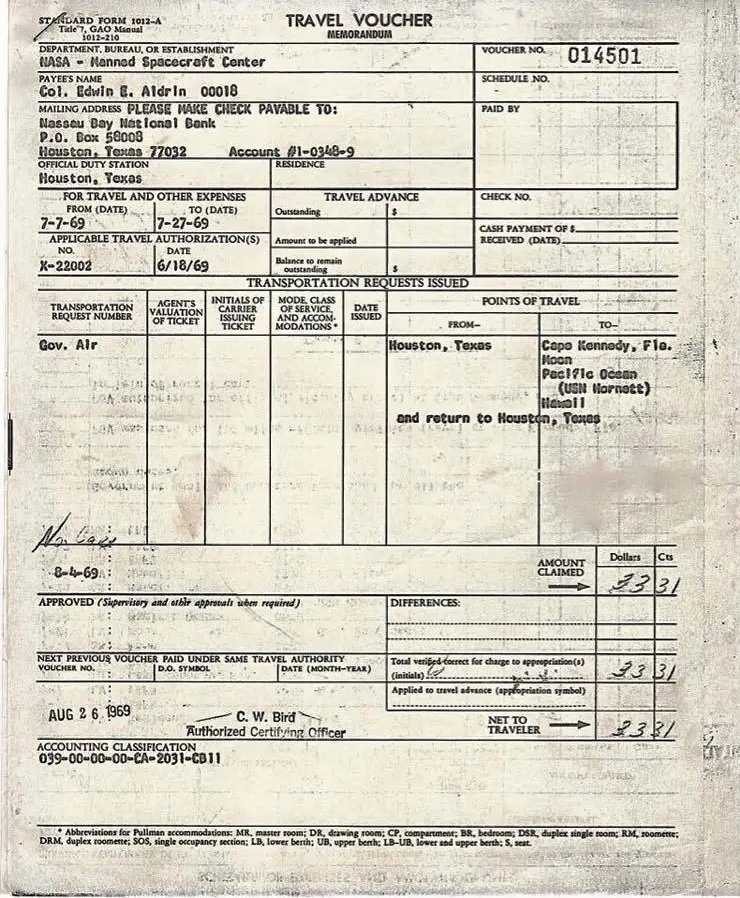 STANDARD FORM 1012-A
Title 7, GAO Manual
1012-210
TRAVEL VOUCHER
MEMORANDUM
DEPARTMENT, BUREAU, OR ESTABLISHMENT
NASA - Manned Spacecraft Center
VOUCHER NO. 014501
PAYEE'S NAME
Col. Edwin E. Aldrin 00018
SCHEDULE NO.
MAILING ADDRESS PLEASE MAKE CHECK PAYABLE TO:
Nassau Bay National Bank
P.O. Box 58008
Houston, Texas 77032 Account #1-0348-9
PAID BY
OFFICIAL DUTY STATION
Houston, Texas
RESIDENCE
FOR TRAVEL AND OTHER EXPENSES
FROM (DATE) TO (DATE)
7-7-69 7-27-69
TRAVEL ADVANCE
Outstanding $
CHECK NO.
APPLICABLE TRAVEL AUTHORIZATION(S)
NO. DATE
X-22002 6/18/69
Amount to be applied
Balance to remain
outstanding $
CASH PAYMENT OF $
RECEIVED (DATE)
TRANSPORTATION REQUESTS ISSUED
TRANSPORTATION
REQUEST NUMBER
AGENT'S
VALUATION
OF TICKET
INITIALS OF
CARRIER
ISSUING
TICKET
MODE, CLASS
OF SERVICE,
AND ACCOM-
MODATIONS *
DATE
ISSUED
POINTS OF TRAVEL
FROM- TO-
Gov. Air Houston, Texas Cape Kennedy, Fla.
Moon
Pacific Ocean
(USN Hornett)
Hawaii
and return to Houston, Texas
8-4-69
AMOUNT
CLAIMED
Dollars Cts
33 31
APPROVED (Supervisory and other approvals when required)
DIFFERENCES:
NEXT PREVIOUS VOUCHER PAID UNDER SAME TRAVEL AUTHORITY
VOUCHER NO. D.O. SYMBOL DATE (MONTH-YEAR)
Total verified correct for charge to appropriation(s)
(initials) 33 31
Applied to travel advance (appropriation symbol)
AUG 26 1969
C. W. Bird
Authorized Certifying Officer
NET TO
TRAVELER 33 31
ACCOUNTING CLASSIFICATION
039-00-00-00-CA-2031-CB11
* Abbreviations for Pullman accommodations: MR, master room; DR, drawing room; CP, compartment; BR, bedroom; DSR, duplex single room; RM, roomette;
DRM, duplex roomette; SOS, single occupancy section; LB, lower berth; UB, upper berth; LB-UB, lower and upper berth; S, seat.